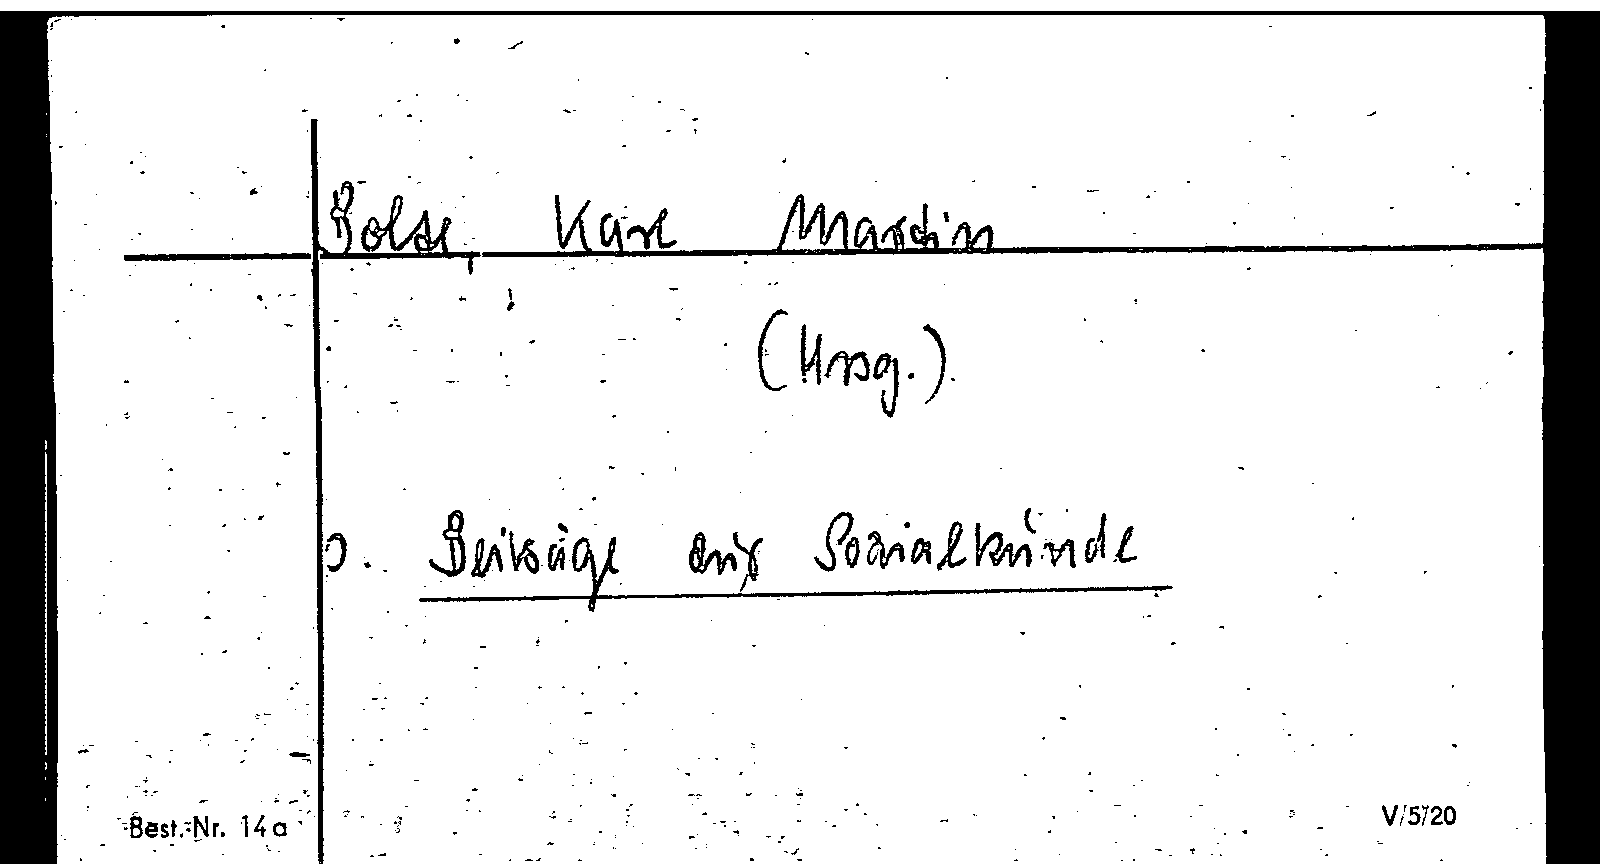 Bolte, Karl Martin
(Hrsg.)
s. Beiträge zur Sozialkunde
Best.-Nr. 14a V/5/20